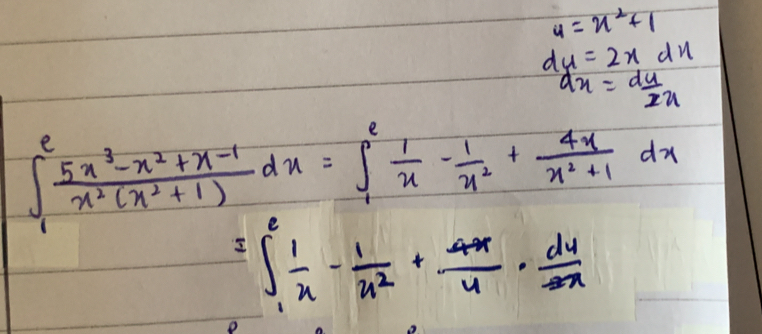 u = x²+1
du = 2x dx
dx = du/2x
∫₁ᵉ (5x³-x²+x-1)/(x²(x²+1)) dx = ∫₁ᵉ 1/x - 1/x² + 4x/(x²+1) dx
= ∫₁ᵉ 1/x - 1/x² + 4x/u · du/2x